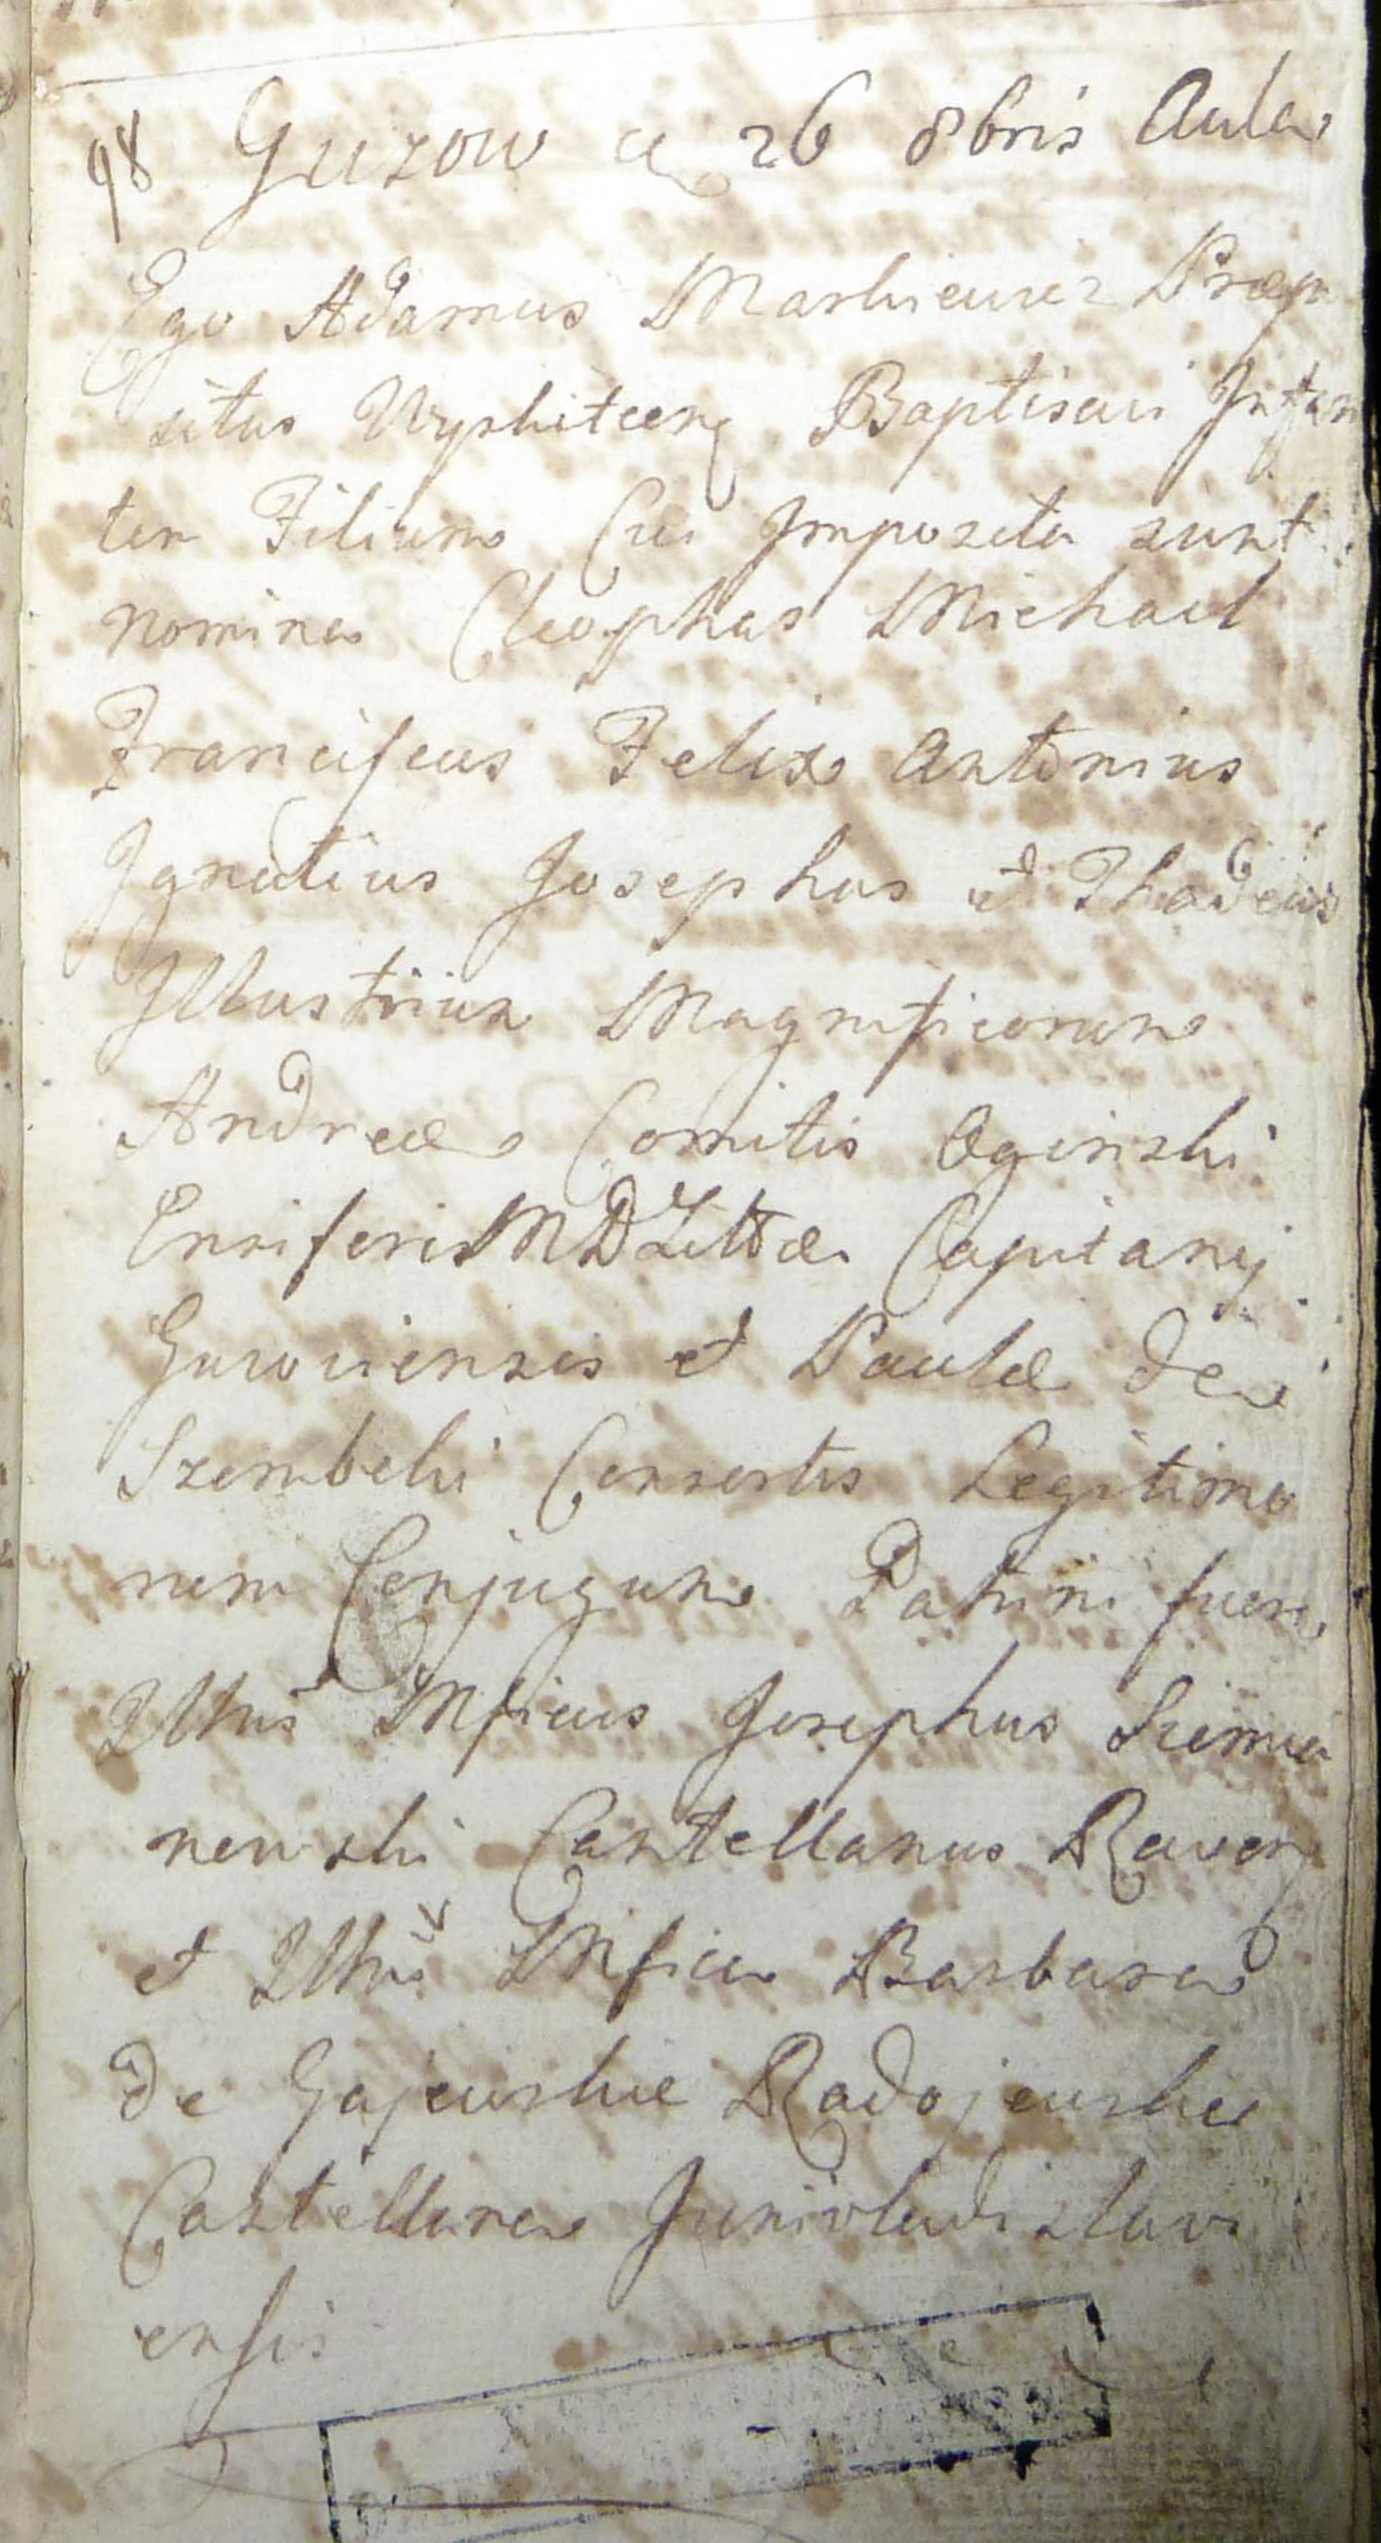 98 Guzow d 26 8bris Aula
Ego Adamus Markiewicz Præpo
situs Wyskitcen Baptisavi Infan
tem Filium Cui Imposita sunt
nomina Cleophas Michael
Franciscus Felix Antonius
Ignatius Josephus et Thadeus
Illustrium Magnificorum
Andreæ Comitis Oginski
Ensiferi M D Litt æ Capitanei
Guzoviensis et Paulæ de
Szembeki Consortis Legitimo
rum Conjugum Patrini fuere
Illtris Mficus Josephus Siemia
nowski Castellanus Raven
et Illtris Mfica Barbara
de Gajewskie Radojewska
Castellana Junivladislavi
ensis